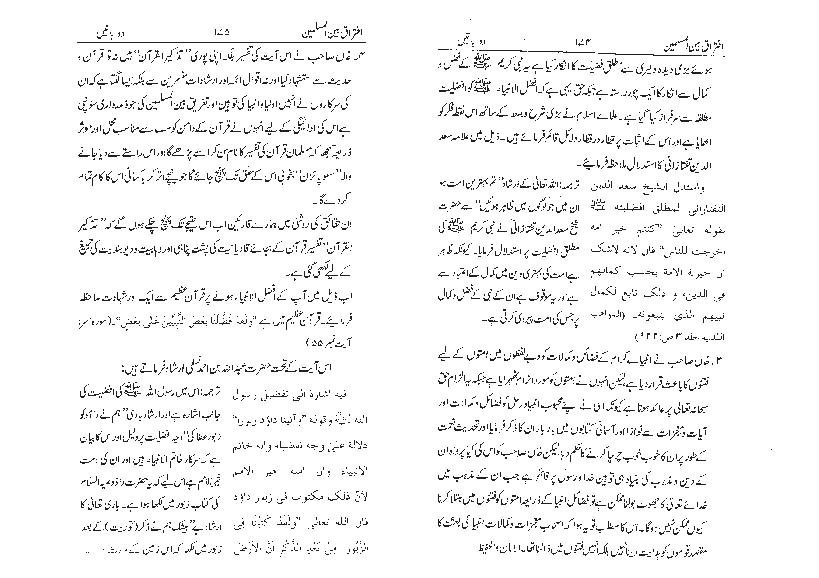 افتراق بین المسلمین ۱۷۴ دو باتیں
ہوئے بڑی دیدہ دلیری سے مطلق فضیلت کا انکار کیا ہے یہ نبی کریم ﷺ کے فضل و
کمال سے انکار کا ایک چور راستہ ہے جبکہ حق یہی ہے کہ افضل الانبیاء ﷺ کو افضلیت
مطلقہ سے سرفراز کیا گیا ہے۔ علمائے اسلام نے بڑی شرح و بسط کے ساتھ اس نقطۂ فکر کو
اٹھایا ہے اور اس کے اثبات پر قطار در قطار دلائل قائم فرمائے ہیں۔ ذیل میں علامہ سعد
الدین تفتازانی کا استدلال ملاحظہ فرمائیے۔
واستدل الشیخ سعد الدین
التفتازانی لمطلق افضلیتہ ﷺ
بقولہ تعالیٰ "کنتم خیر امۃ
اخرجت للناس" قال لانہ لاشک
ان خیریۃ الامۃ بحسب کمالھم
فی الدین، و ذلک تابع لکمال
نبیھم الذی یتبعونہ۔ (المواھب
اللدنیہ جلد ۳ ص: ۹۲۲)
ترجمہ: اللہ تعالیٰ کے ارشاد "تم بہترین امت ہو
ان میں جو لوگوں میں ظاہر ہوئیں" سے حضرت
شیخ سعد الدین تفتازانی نے نبی کریم ﷺ کی
مطلق افضلیت پر استدلال فرمایا۔ کیونکہ ظاہر
ہے امت کی بہتری دین میں کمال کے اعتبار سے
ہے اور یہ موقوف ہے ان کے نبی کے فضل و کمال
پر جس کی امت پیروی کرتی ہے۔
۳۔ خاں صاحب نے انبیائے کرام کے فضائل و کمالات کو دبے لفظوں میں امتوں کے لیے
فتنوں کا باعث قرار دیا ہے لیکن انہوں نے امتوں کو مورد الزام ٹھہرایا ہے جبکہ یہ الزام حق
سبحانہ تعالیٰ پر عائد ہوتا ہے کیونکہ اسی نے اپنے محبوب انبیاء و رسل کو فضائل و کمالات اور
آیات و معجزات سے نوازا اور آسمانی کتابوں میں بار بار ان کا ذکر فرمایا اور تحدیث نعمت
کے طور پر ان کا خوب خوب چرچا کرنے کا حکم دیا لیکن خاں صاحب کو اس کی کیا پرواہ ان
کے دین و مذہب کی بنیاد ہی توہین خدا و رسول پر قائم ہے جب ان کے مذہب میں
خدائے تعالیٰ کا جھوٹ بولنا ممکن ہے تو فضائل انبیاء کے ذریعہ امتوں کو فتنوں میں مبتلا کرنا
کیوں ممکن نہیں ہوگا۔ اس کا مطلب تو یہ ہوا کہ اصحاب معجزات و کمالات انبیاء کی بعثت کا
مقصد قوموں کو ہدایت دینا نہیں بلکہ انہیں فتنوں میں ڈالنا تھا۔ الامان والحفیظ
افتراق بین المسلمین ۱۷۵ دو باتیں
۴۔ خاں صاحب نے اس آیت کی تفسیر بلکہ اپنی پوری "تذکیر القرآن" میں نہ تو قرآن و
حدیث سے استشہاد کیا اور نہ اقوال ائمہ اور ارشادات مفسرین سے بلکہ ایسا لگتا ہے کہ ان
کی سرکاروں نے انہیں اولیاء و انبیاء کی توہین اور تفریق بین المسلمین کی جو ذمہ داری سونپی
ہے اس کی ادائیگی کے لیے انہوں نے قرآن کے دامن کو سب سے مناسب محل اور مؤثر
ذریعہ سمجھا کہ مسلمان قرآن کی تفسیر کا نام سن کر اسے پڑھے گا اور اس راستے سے دیا جانے
والا "سلو پوائزن" بخوبی اس کے حلق تک پہنچ جائے گا جو نیچے اتر کر بآسانی اس کا کام تمام
کر دے گا۔
ان حقائق کی روشنی میں ہمارے قارئین اب اس نتیجے تک پہنچ چکے ہوں گے کہ "تذکیر
القرآن" تفسیر قرآن کے بجائے قادیانیت کی پشت پناہی اور وہابیت و دیوبندیت کی تبلیغ
کے لیے لکھی گئی ہے۔
اب ذیل میں آپ کے افضل الانبیاء ہونے پر قرآن عظیم سے ایک اور شہادت ملاحظہ
فرمائیے۔ قرآن عظیم میں ہے "وَلَقَدْ فَضَّلْنَا بَعْضَ النَّبِیِّیْنَ عَلٰی بَعْضٍ"۔ (سورہ اسراء
آیت نمبر ۵۵)
اس آیت کے تحت حضرت عبد اللہ بن احمد نسفی ارشاد فرماتے ہیں:
فیہ اشارۃ الی تفضیل رسول
اللہ ﷺ وقولہ "وآتینا داؤد زبورا"
دلالۃ علیٰ وجہ تفضیلہ وانہ خاتم
الانبیاء وان امتہ خیر الامم
لانّ ذلک مکتوب فی زبور داؤد
قال اللہ تعالیٰ "وَلَقَدْ کَتَبْنَا فِی
الزَّبُوْرِ مِنْ بَعْدِ الذِّکْرِ اَنَّ الْاَرْضَ
ترجمہ: اس میں رسول اللہ ﷺ کی افضلیت کی
جانب اشارہ ہے اور ارشاد باری "ہم نے داؤد کو
زبور عطا کی" وجہ فضیلت پر دلیل، اور اس کا بیان
ہے کہ سرکار خاتم الانبیاء ہیں اور ان کی امت
خیر الامم ہے اس لیے کہ یہ حضرت داؤد علیہ السلام
کی کتاب زبور میں لکھا ہوا ہے۔ باری تعالیٰ کا
ارشاد ہے "بیشک ہم نے ذکر (توریت) کے بعد
زبور میں لکھا کہ اس زمین کے